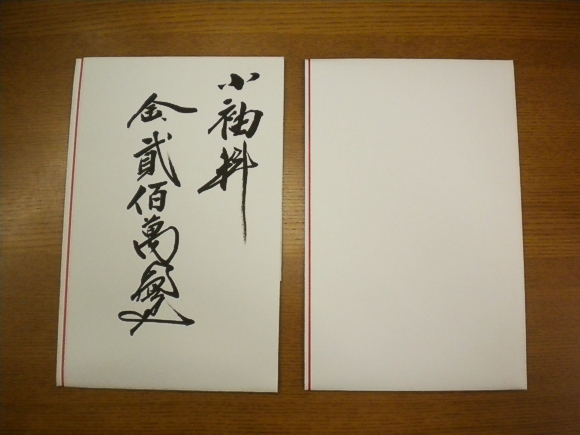 小袖料
金貳佰萬圓也